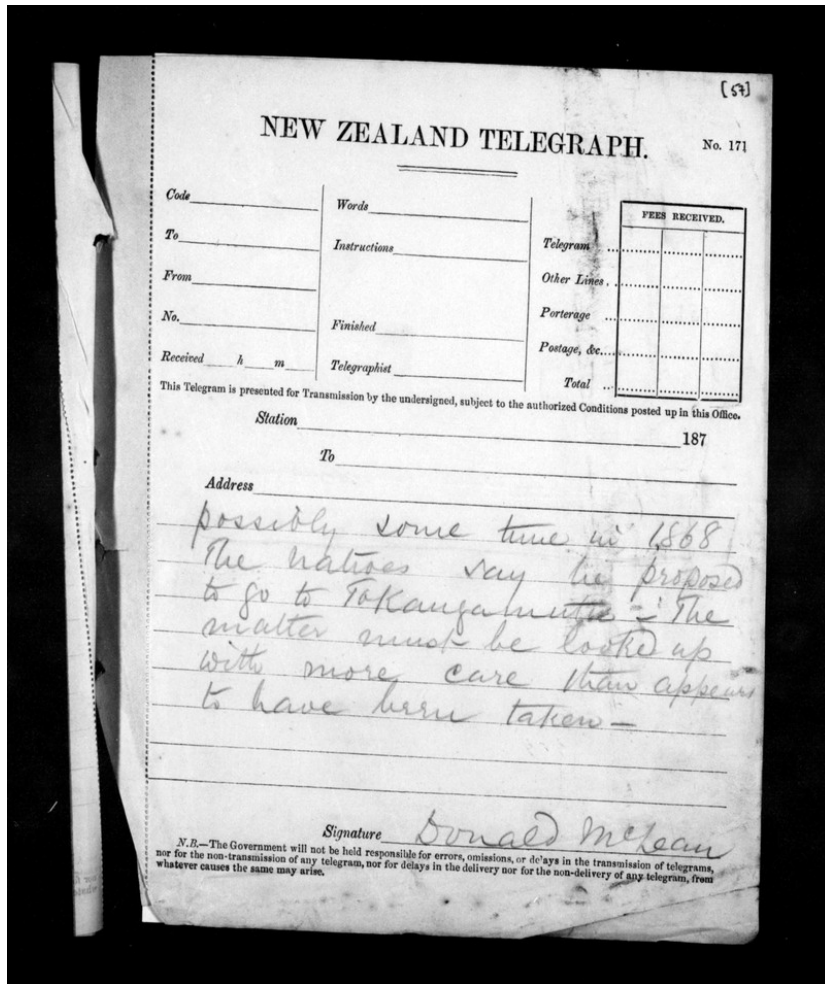 [57]
NEW ZEALAND TELEGRAPH.
No. 171
Code
To
From
No.
Received h m
Words
Instructions
Finished
Telegraphist
FEES RECEIVED.
Telegram
Other Lines
Porterage
Postage, &c.
Total
This Telegram is presented for Transmission by the undersigned, subject to the authorized Conditions posted up in this Office.
Station 187
To
Address
possibly some time in 1868
The natives say he proposed
to go to Tokangamutu – The
matter must be looked up
with more care than appears
to have been taken –
Signature Donald McLean
N.B.—The Government will not be held responsible for errors, omissions, or de'ays in the transmission of telegrams,
nor for the non-transmission of any telegram, nor for delays in the delivery nor for the non-delivery of any telegram, from
whatever causes the same may arise.